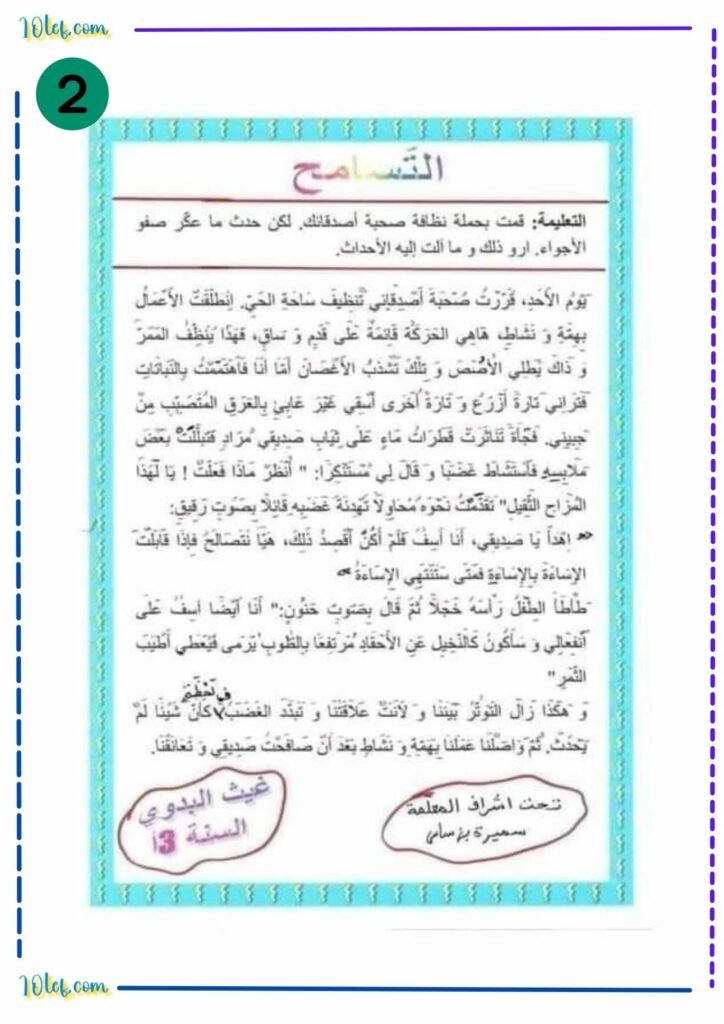 10lef.com
2
التَسامح
التعليمة: قمت بحملة نظافة صحبة أصدقائك. لكن حدث ما عكّر صفو
الأجواء. ارو ذلك و ما آلت إليه الأحداث.
يَوْمُ الأَحَدِ، قَرَّرْتُ صُحْبَةَ أَصْدِقَائِي تَنْظِيفَ سَاحَةِ الحَيِّ. اِنْطَلَقَتْ الأَعْمَالُ
بِهِمَّةٍ وَ نَشَاطٍ، هَاهِيَ الحَرَكَةُ قَائِمَةٌ عَلَى قَدَمٍ وَ سَاقٍ، فَهَذَا يُنَظِّفُ المَمَرَّ
وَ ذَاكَ يَطْلِي الأُصُصَ وَ تِلْكَ تُشَذِّبُ الأَغْصَانَ أَمَّا أَنَا فَاهْتَمَمْتُ بِالنَبَاتَاتِ
فَتَرَانِي تَارَةً أَزْرَعُ وَ تَارَةً أُخْرَى أَسْقِي غَيْرَ عَابِئٍ بِالعَرَقِ المُتَصَبِّبِ مِنْ
جَبِينِي. فَجْأَةً تَنَاثَرَتْ قَطَرَاتُ مَاءٍ عَلَى ثِيَابِ صَدِيقِي مُرَادٍ فَتَبَلَّلَتْ بَعْضُ
مَلَابِسِهِ فَاسْتَشَاطَ غَضَبًا وَ قَالَ لِي مُسْتَنْكِرًا: " أُنْظُرْ مَاذَا فَعَلْتَ ! يَا لَهَذَا
المُزَاحِ الثَّقِيلِ" تَقَدَّمْتُ نَحْوَهُ مُحَاوِلاً تَهْدِئَةَ غَضَبِهِ قَائِلاً بِصَوْتٍ رَقِيقٍ:
" اِهْدَأْ يَا صَدِيقِي، أَنَا آسِفٌ فَلَمْ أَكُنْ أَقْصِدُ ذَلِكَ، هَيَّا نَتَصَالَحُ فَإِذَا قَابَلْتَ
الإِسَاءَةَ بِالإِسَاءَةِ فَمَتَى سَتَنْتَهِي الإِسَاءَةُ "
طَأْطَأَ الطِّفْلُ رَأْسَهُ خَجَلًا ثُمَّ قَالَ بِصَوْتٍ حَنُونٍ:" أَنَا أَيْضًا آسِفٌ عَلَى
اِنْفِعَالِي وَ سَأَكُونُ كَالنَّخِيلِ عَنِ الأَحْقَادِ مُرْتَفِعًا بِالطُّوبِ يُرْمَى فَيُعْطِي أَطْيَبَ
الثَّمَرِ"
وَ هَكَذَا زَالَ التَوَتُّرُ بَيْنَنَا وَ لَانَتْ عَلَاقَتُنَا وَ تَبَدَّدَ الغَضَبُ في لحظة كَأَنَّ شَيْئًا لَمْ
يَحْدُثْ. ثُمَّ وَاصَلْنَا عَمَلَنَا بِهِمَّةٍ وَ نَشَاطٍ بَعْدَ أَنْ صَافَحْتُ صَدِيقِي وَ تَعَانَقْنَا.
تحت اشراف المعلّمة
سميرة بن ساسي
غيث البدوي
السنة 3أ
10lef.com